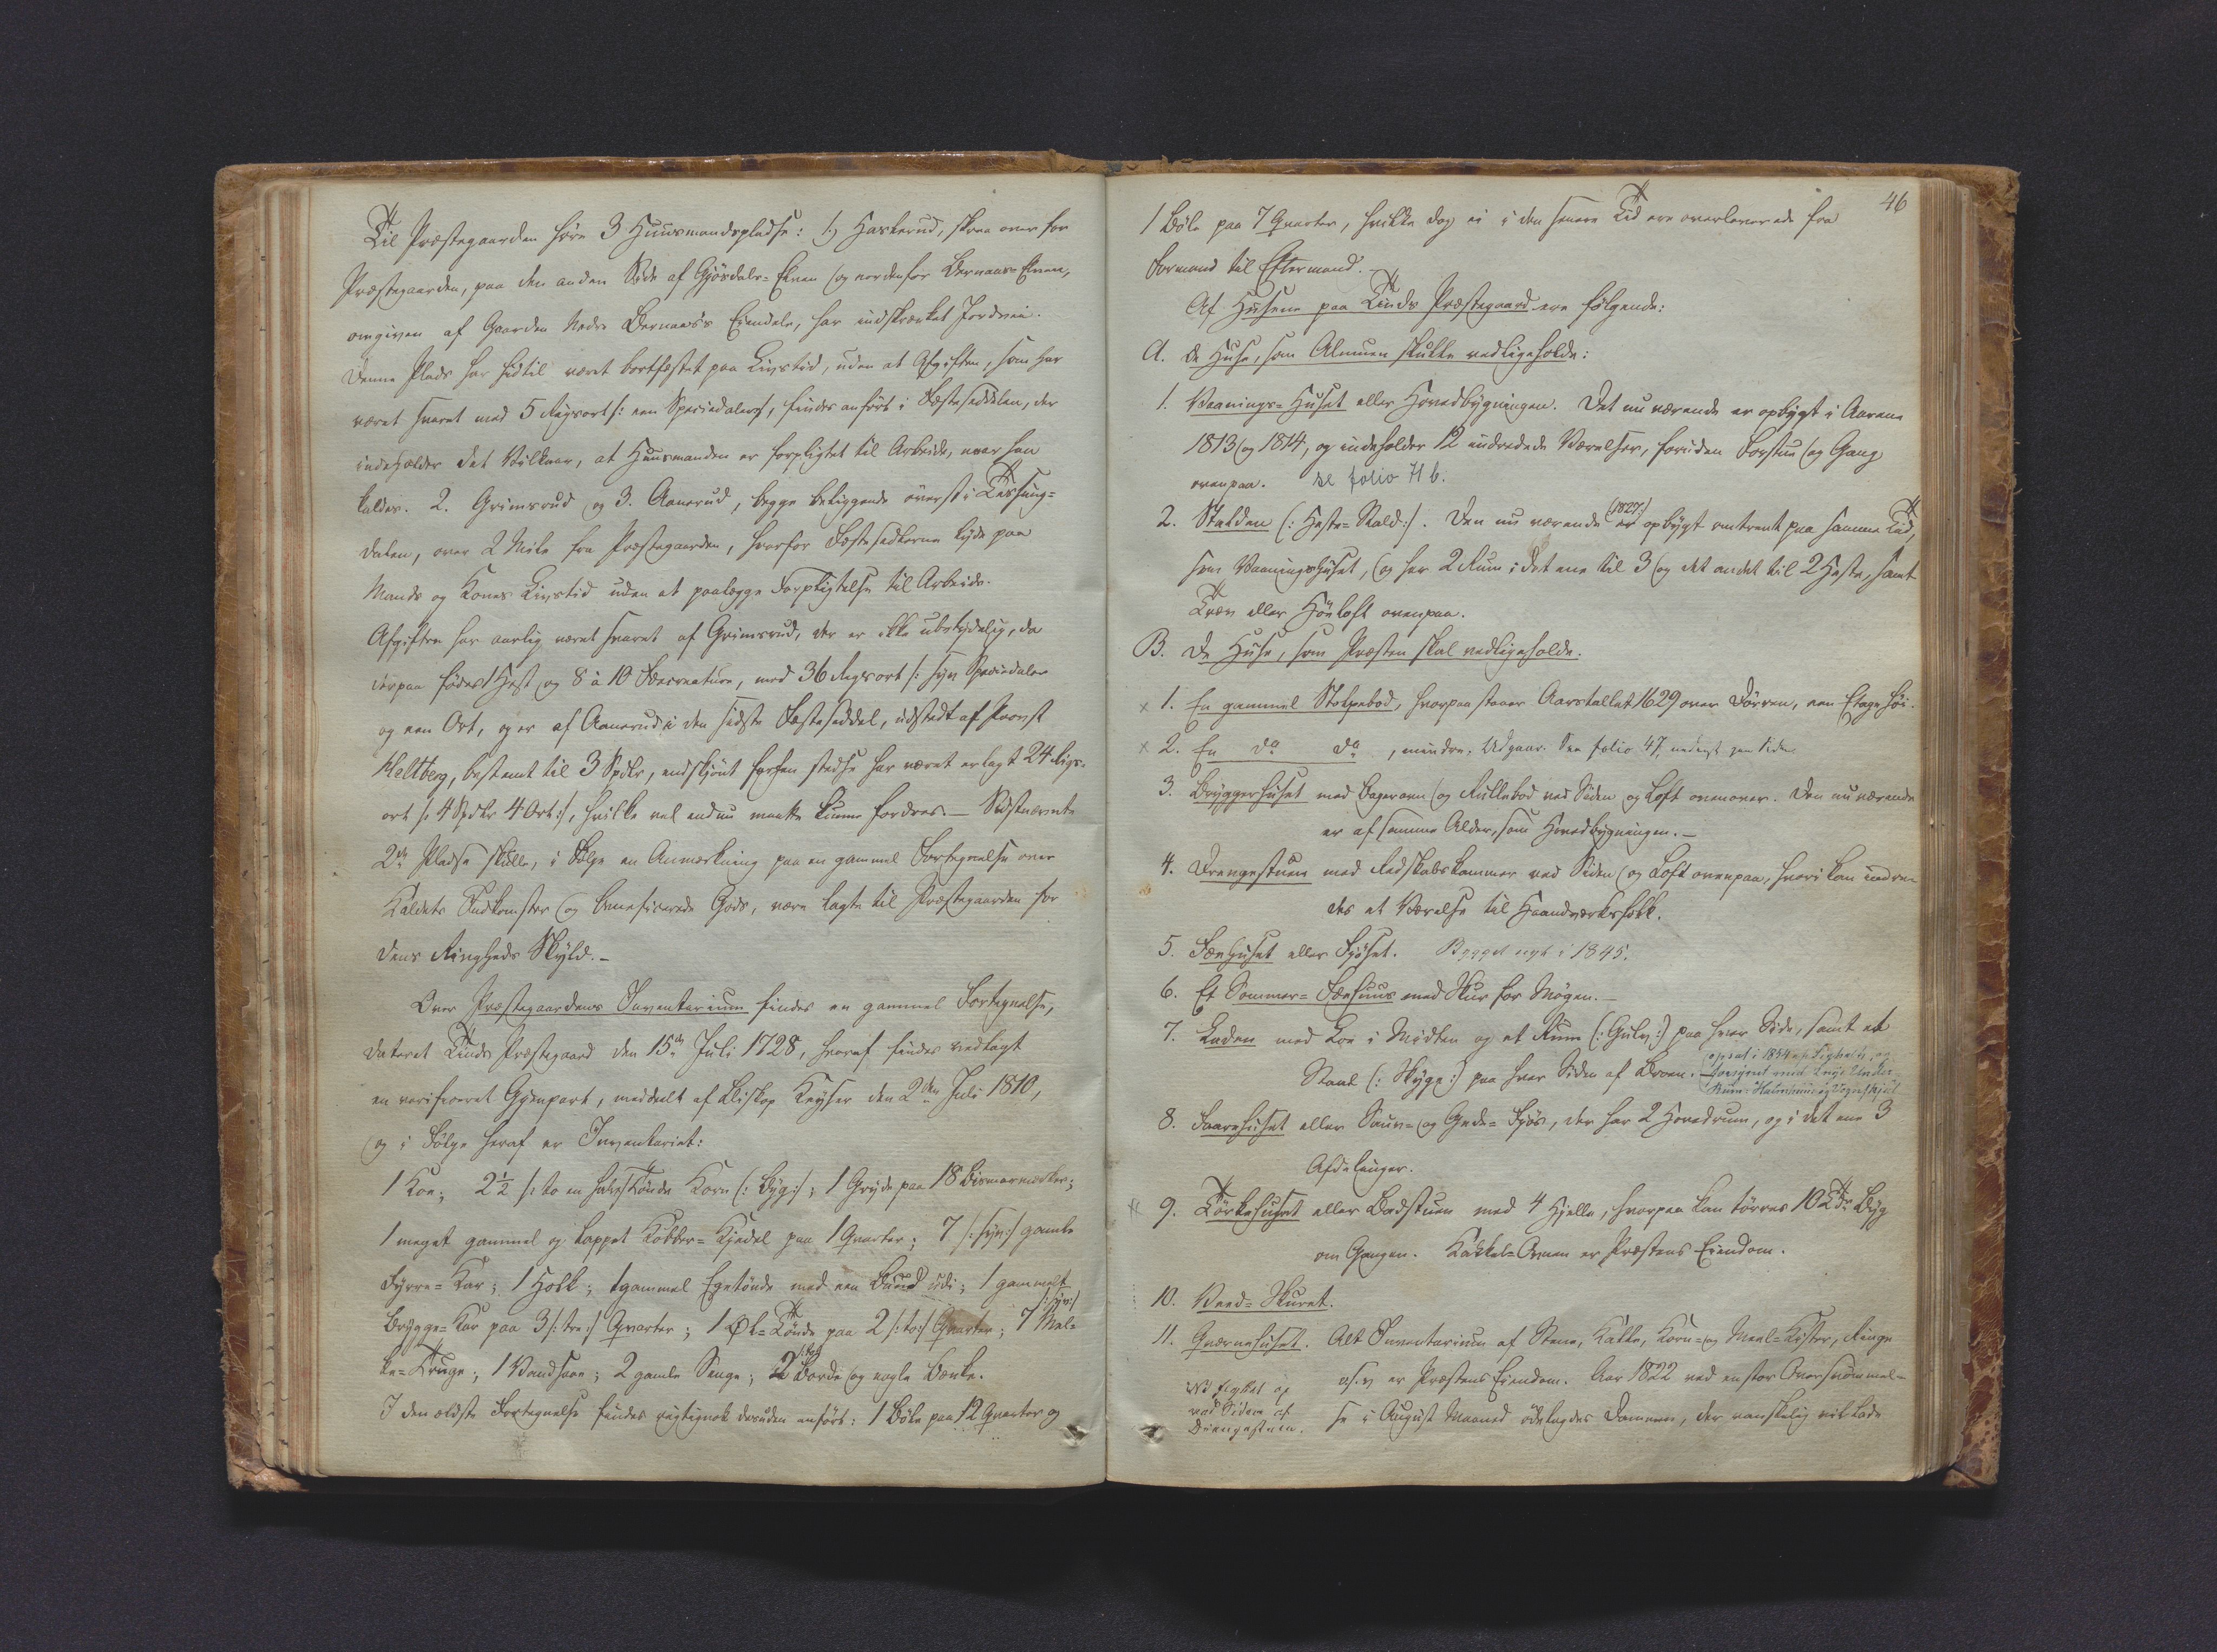 Til Præstegaarden høre 3 Huusmandspladse: 1) Haslerud, skraa over for
Præstegaarden, paa den anden Side af Gjøsdals-Elven og nordenfor Bernaas-Elven,
omgiven af Gaarden Nedre Bernaas's Eiendele, har indskrænket Jordvei.
Denne Plads har hidtil været bortfæstet paa Livstid, uden at Afgiften, som har
været svaret med 5 Rigsort /: een Speciedaler :/, findes anført i Fæsteseddelen, der
indeholder det Vilkaar, at Huusmanden er forpligtet til Arbeide, naar han
kaldes. 2. Grimsrud og 3. Aanerud, begge beliggende øverst i Tessung-
dalen, over 2 Mile fra Præstegaarden, hvorfor Fæstesedlerne lyde paa
Mands og Kones Livstid uden at paalægge Forpligtelse til Arbeide.
Afgiften har aarlig været svaret af Grimsrud, der er ikke ubetydelig, da
derpaa fødes 1 Hest og 8 à 10 Fæecreature, med 36 Rigsort /: syv Speciedaler
og een Ort, og er af Aanerud i den sidste Fæsteseddel, udstedt af Provst
Heltberg, bestemt til 3 Spdlr, endskjønt forhen stedse har været erlagt 24 Rigs-
ort /: 4 Spdlr 4 Ort :/, hvilke vel endnu maatte kunne fordres. — Sidstnævnte
2de Pladse skulle, i Følge en Anmærkning paa en gammel Fortegnelse over
Kaldets Indkomster og beneficerede Gods, være lagte til Præstegaarden for
dens Ringheds Skyld. —
Over Præstegaardens Inventarium findes en gammel Fortegnelse,
dateret Tinds Præstegaard den 15de Juli 1728, hvoraf findes vedlagt
en verificeret Gjenpart, meddeelt af Biskop Keyser den 2den Juli 1810,
og i Følge heraf er Inventariet:
1 Koe; 2½ /: to en halv :/ Tønde Korn (: Byg :); 1 Gryde paa 18 Bismermerker;
1 meget gammel og lappet Kobber-Kjedel paa 1 Qvarter; 7 /: syv :/ gamle
Fyrre-Kar; 1 Holk; 1 gammel Egetønde med een Bund udi; 1 gammelt
Brygge-Kar paa 3 /: tre :/ Qvarter; 1 Øl-Tønde paa 2 /: to :/ Qvarter; 7 /: syv :/ Mel-
ke-Truge; 1 Vandsaae; 2 gamle Senge; 2 /: to :/ Borde og nogle Bænke.
I den ældste Fortegnelse findes rigtignok desuden anført: 1 Bøle paa 12 Qvarter og
46
1 Bøle paa 7 Qvarter, hvilke dog ei i den senere Tid ere overleverede fra
Formand til Eftermand.
Af Husene paa Tinds Præstegaard ere følgende:
A. De Huse, som Almuen skulle vedligeholde:
1. Vaanings-Huset eller Hovedbygningen. Det nu værende er opbygt i Aarene
1813 og 1814, og indeholder 12 indredede Værelser, foruden Forstue og Gang
ovenpaa. se folio 71 b.
2. Stalden (: Heste-Stald :). Den nu værende (1827:) er opbygt omtrent paa samme Tid,
som Vaaningshuset, og har 2 Rum i det ene til 3 og det andet til 2 Heste, samt
Træv eller Høeloft ovenpaa.
B. De Huse, som Præsten skal vedligeholde.
x 1. En gammel Stolpebod, hvorpaa staaer Aarstallet 1629 over Dørren, een Etage høi.
x 2. En do do, mindre. Udgaar. See folio 47, nederst paa Siden.
3. Bryggerhuset med Bagerovn og Rullebod ved Siden og Loft ovenover. Den nu værende
er af samme Alder, som Hovedbygningen. —
4. Drengestuen med Redskabskammer ved Siden og Loft ovenpaa, hvori kan indre-
des et Værelse til Haandværksfolk.
5. Fæehuset eller Fjøset. Bygget nyt i 1845.
6. Et Sommer-Fæehuus med Skur for Møgen. —
7. Laden med Loe i Midten og et Rum (: Gulv :) paa hver Side, samt et
Staal (: Skygge :) paa hver Siden af Broen.
opsat i 1854
forsynet med
8. Faarehuset eller Sauu- og Gede-Fjøs, der har 2 Hovedrum, og i det ene 3
Afdelinger.
9. Tørkehuset eller Badstuen med 4 Hjelle, hvorpaa kan tørres 10 Tdr Byg
om Gangen. Kakkel-Ovnen er Præstens Eiendom.
10. Veed-Skuret.
11. Qværnehuset. Alt Inventarium af Stene, Kalle, Korn- og Meel-Kister, Ringe
o.s.v. er Præstens Eiendom. Aar 1822 ved en stor Oversvømmel-
se i August Maaned ødelagdes Dammen, der vanskelig vil lade
ved Siden af
Drengestuen.